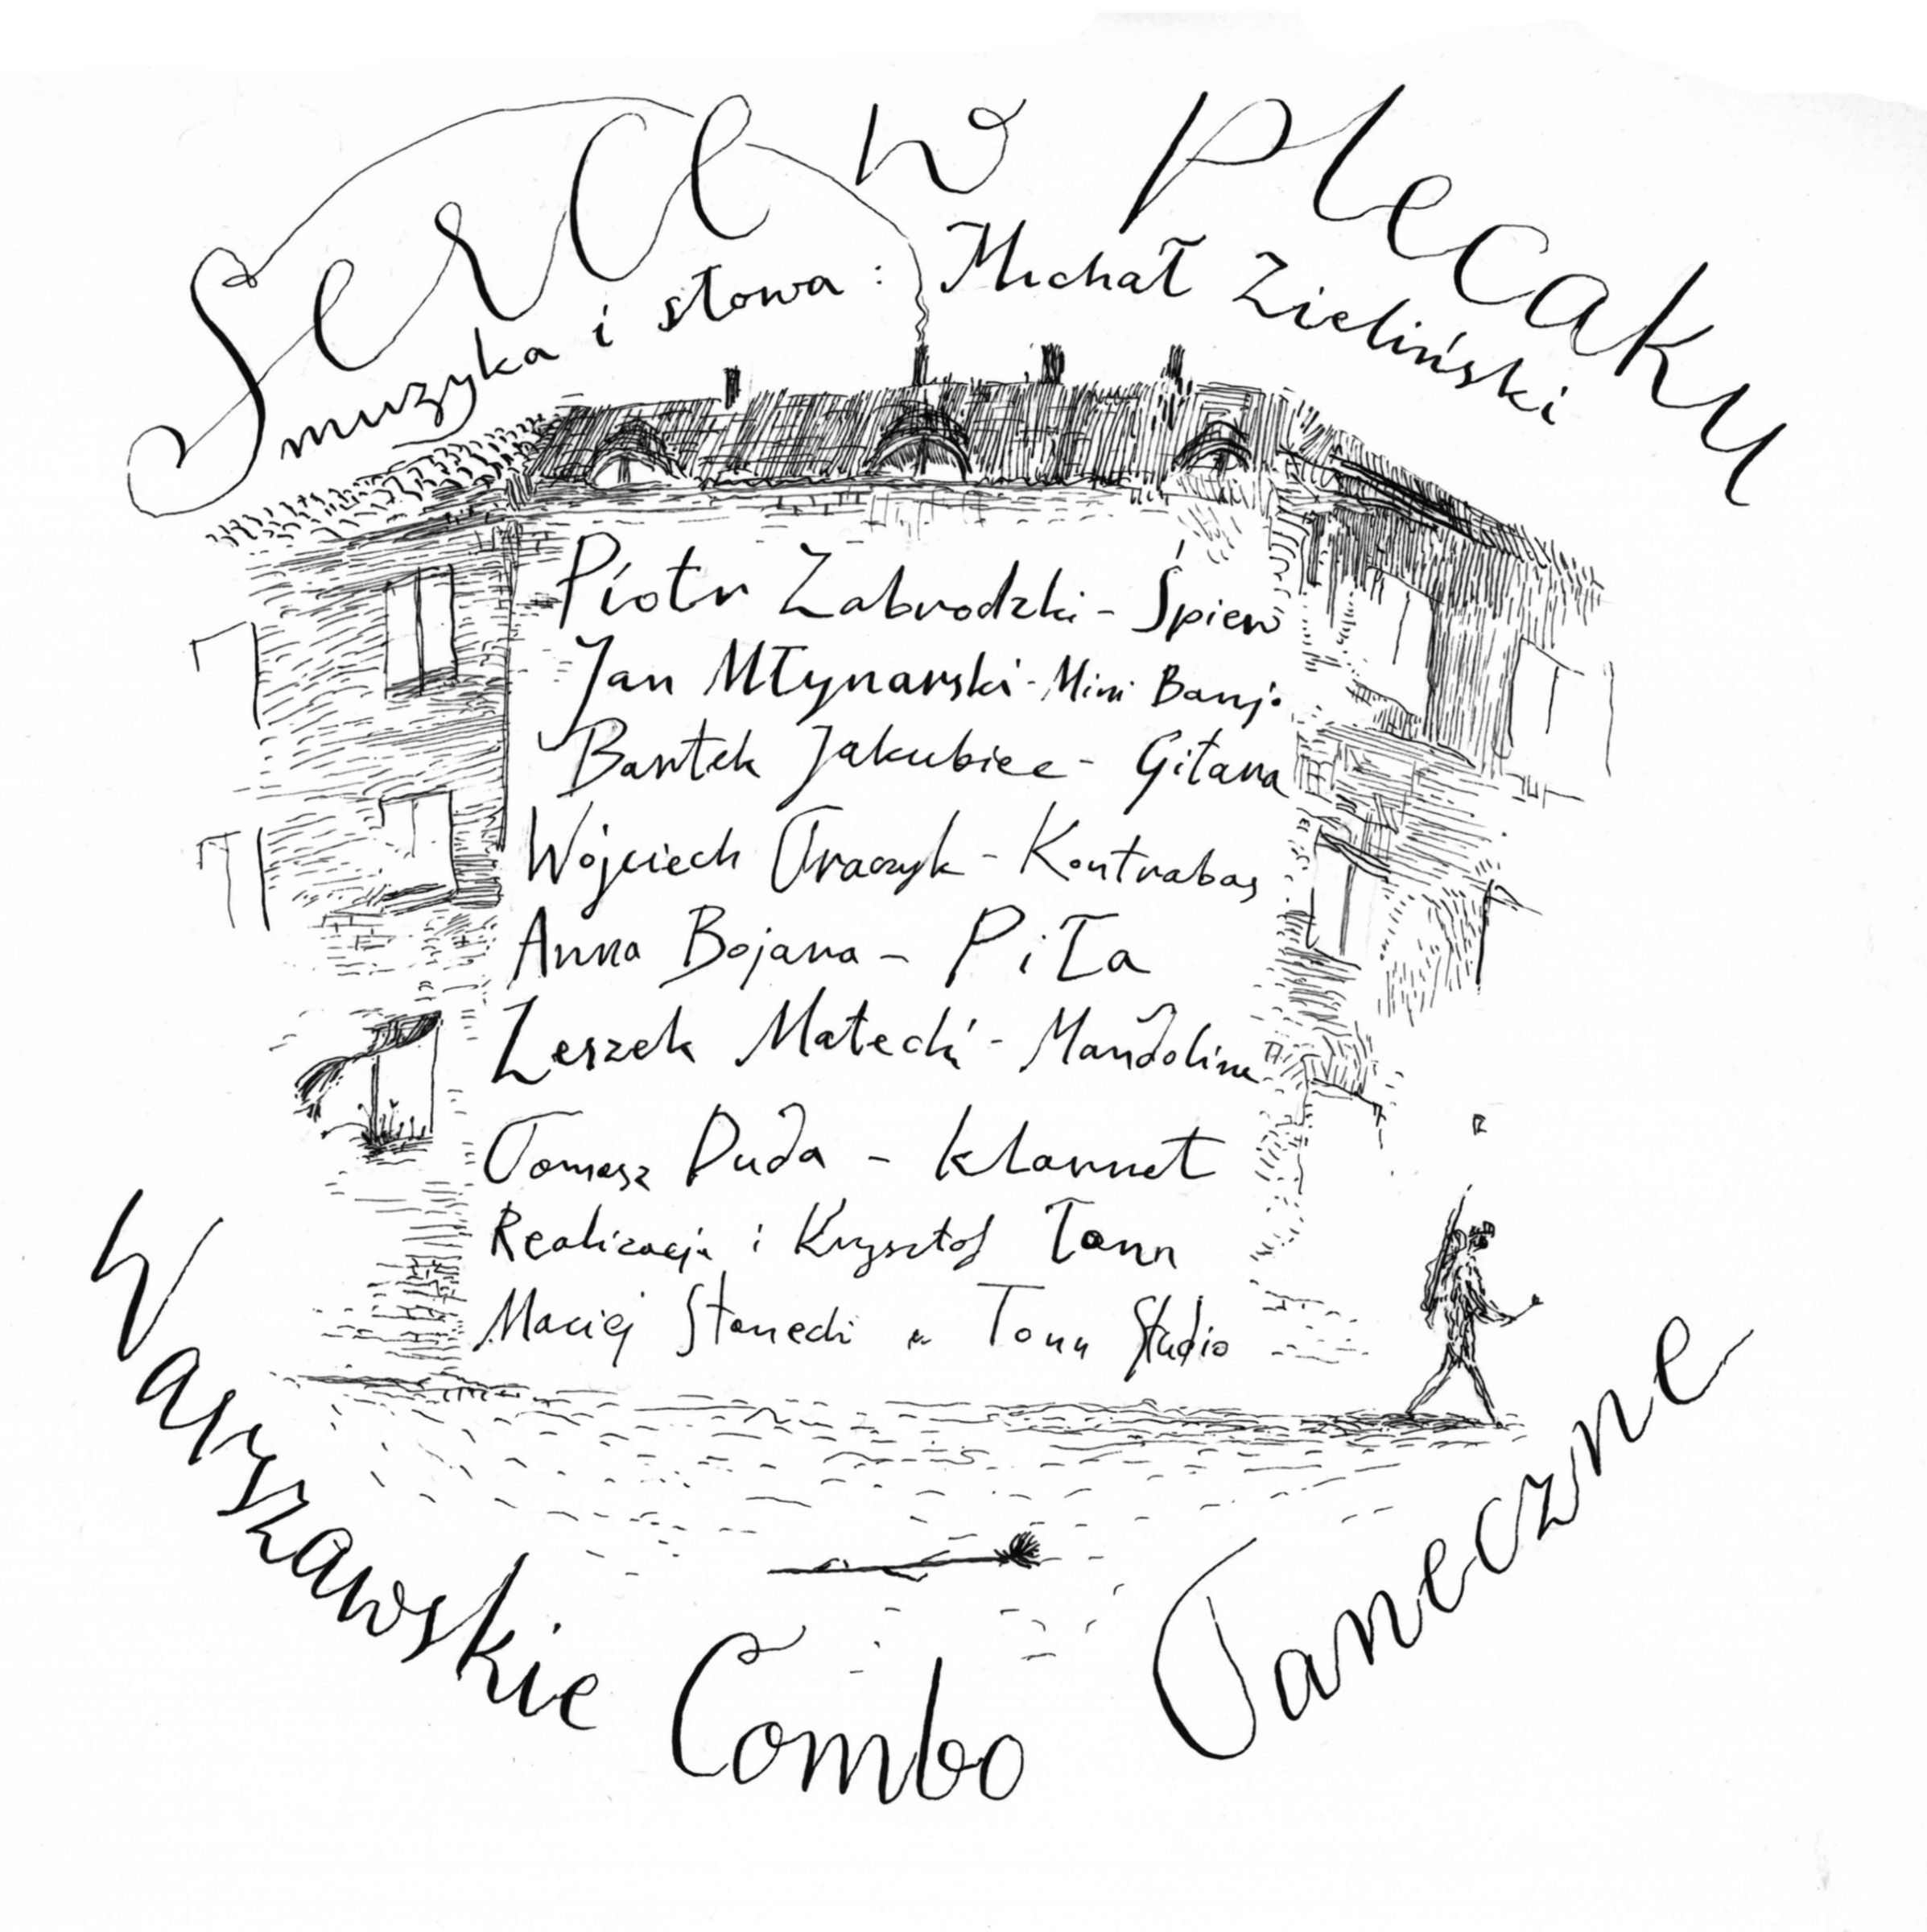 Serce w Plecaku
muzyka i słowa: Michał Zieliński
Piotr Zabrodzki - Śpiew
Jan Młynarski - Mini Banjo
Bartek Jakubiec - Gitara
Wojciech Traczyk - Kontrabas
Anna Bojara - Piła
Leszek Małecki - Mandolina
Tomasz Duda - Klarnet
Realizacja i Krzysztof Tonn
Maciej Stanecki Tonn Studio
Warszawskie Combo Taneczne